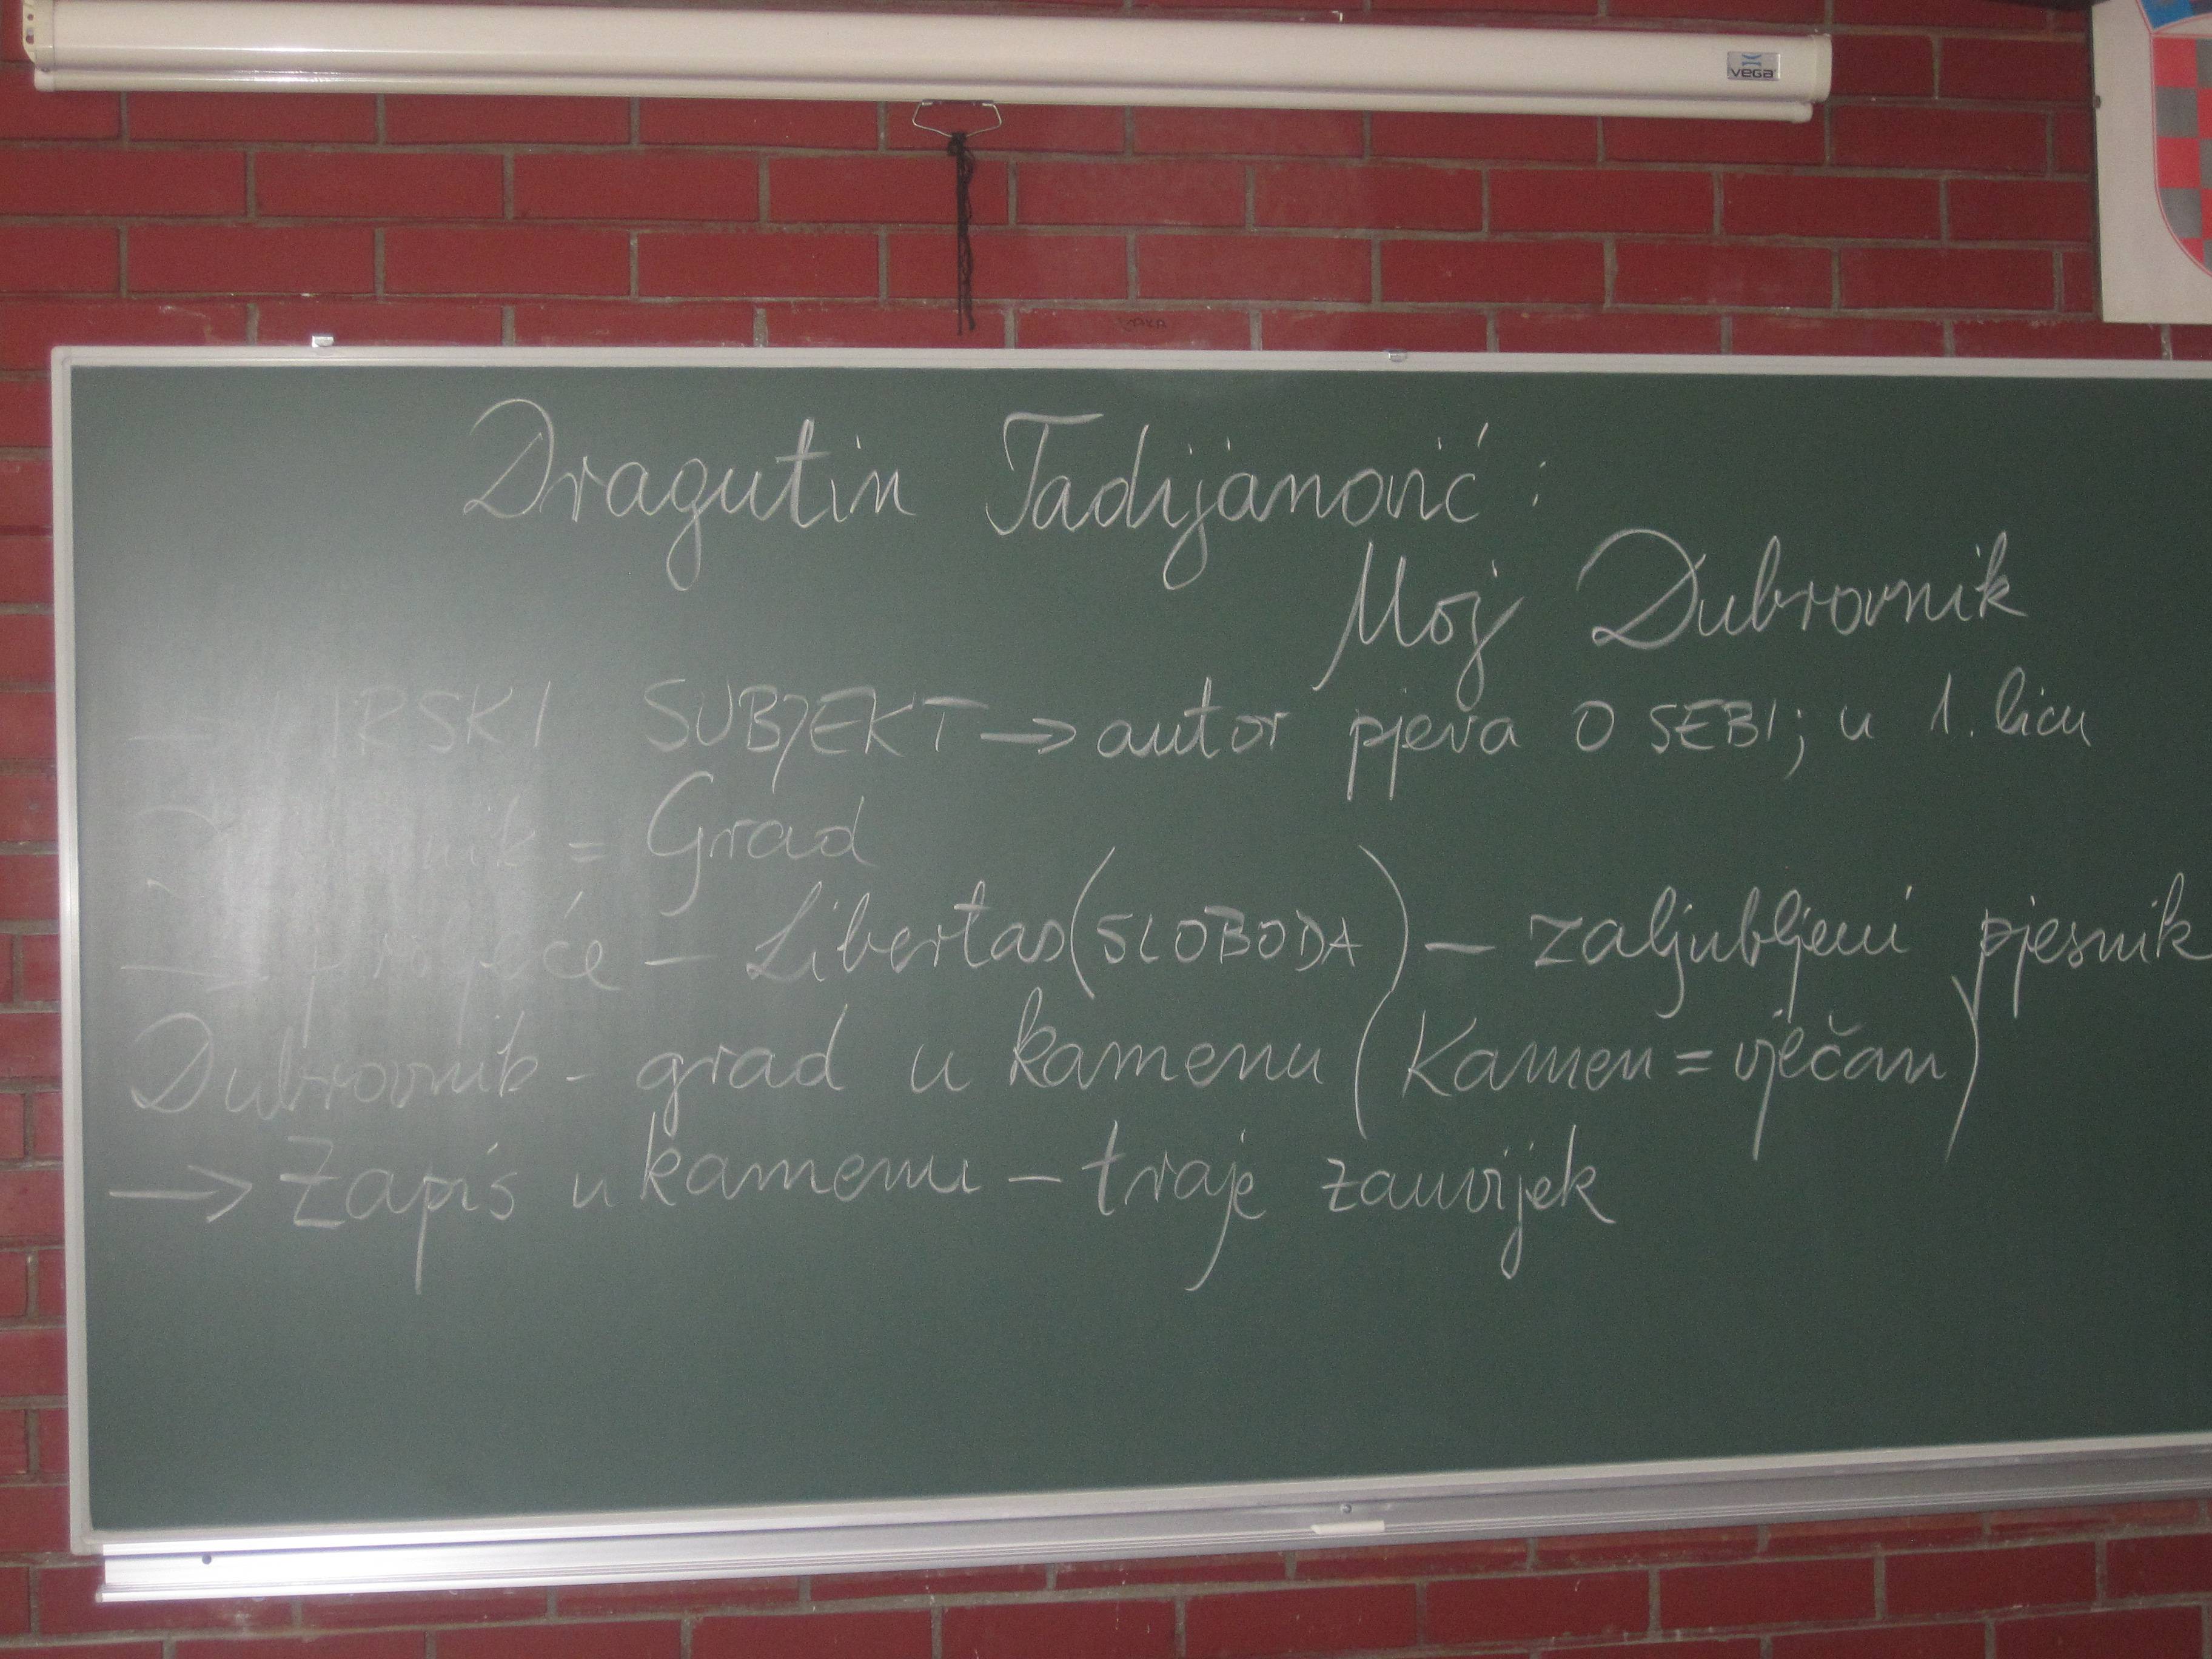 VEGA
Dragutin Tadijanović :
Moj Dubrovnik
— LIRSKI SUBJEKT → autor pjeva O SEBI; u 1. licu
= Grad
→ proljeće – Libertas (SLOBODA) – zaljubljeni pjesnik
Dubrovnik - grad u kamenu (Kamen = vječan)
→ Zapis u kamenu – traje zauvijek